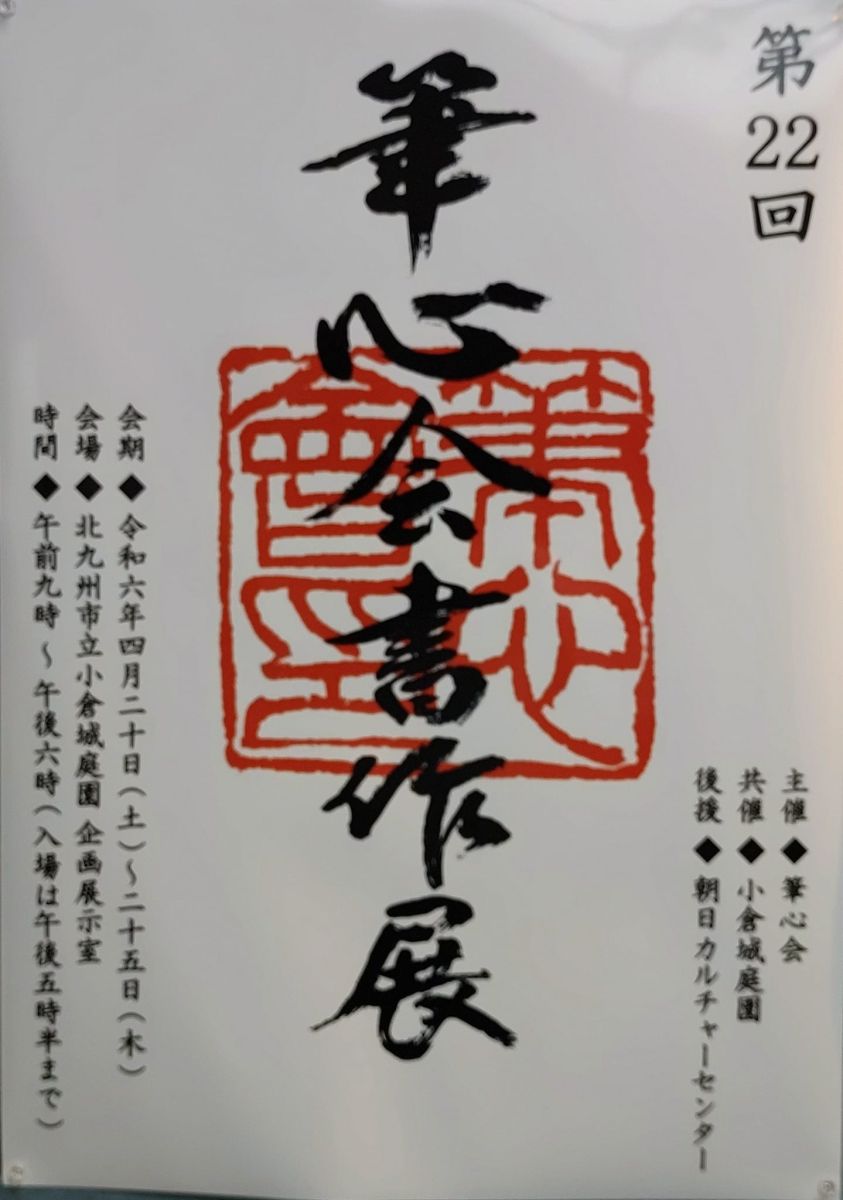 第22回
筆心会書作展
主催◆筆心会
共催◆小倉城庭園
後援◆朝日カルチャーセンター
会期◆令和六年四月二十日(土)～二十五日(木)
会場◆北九州市立小倉城庭園 企画展示室
時間◆午前九時～午後六時(入場は午後五時半まで)
筆心
會印